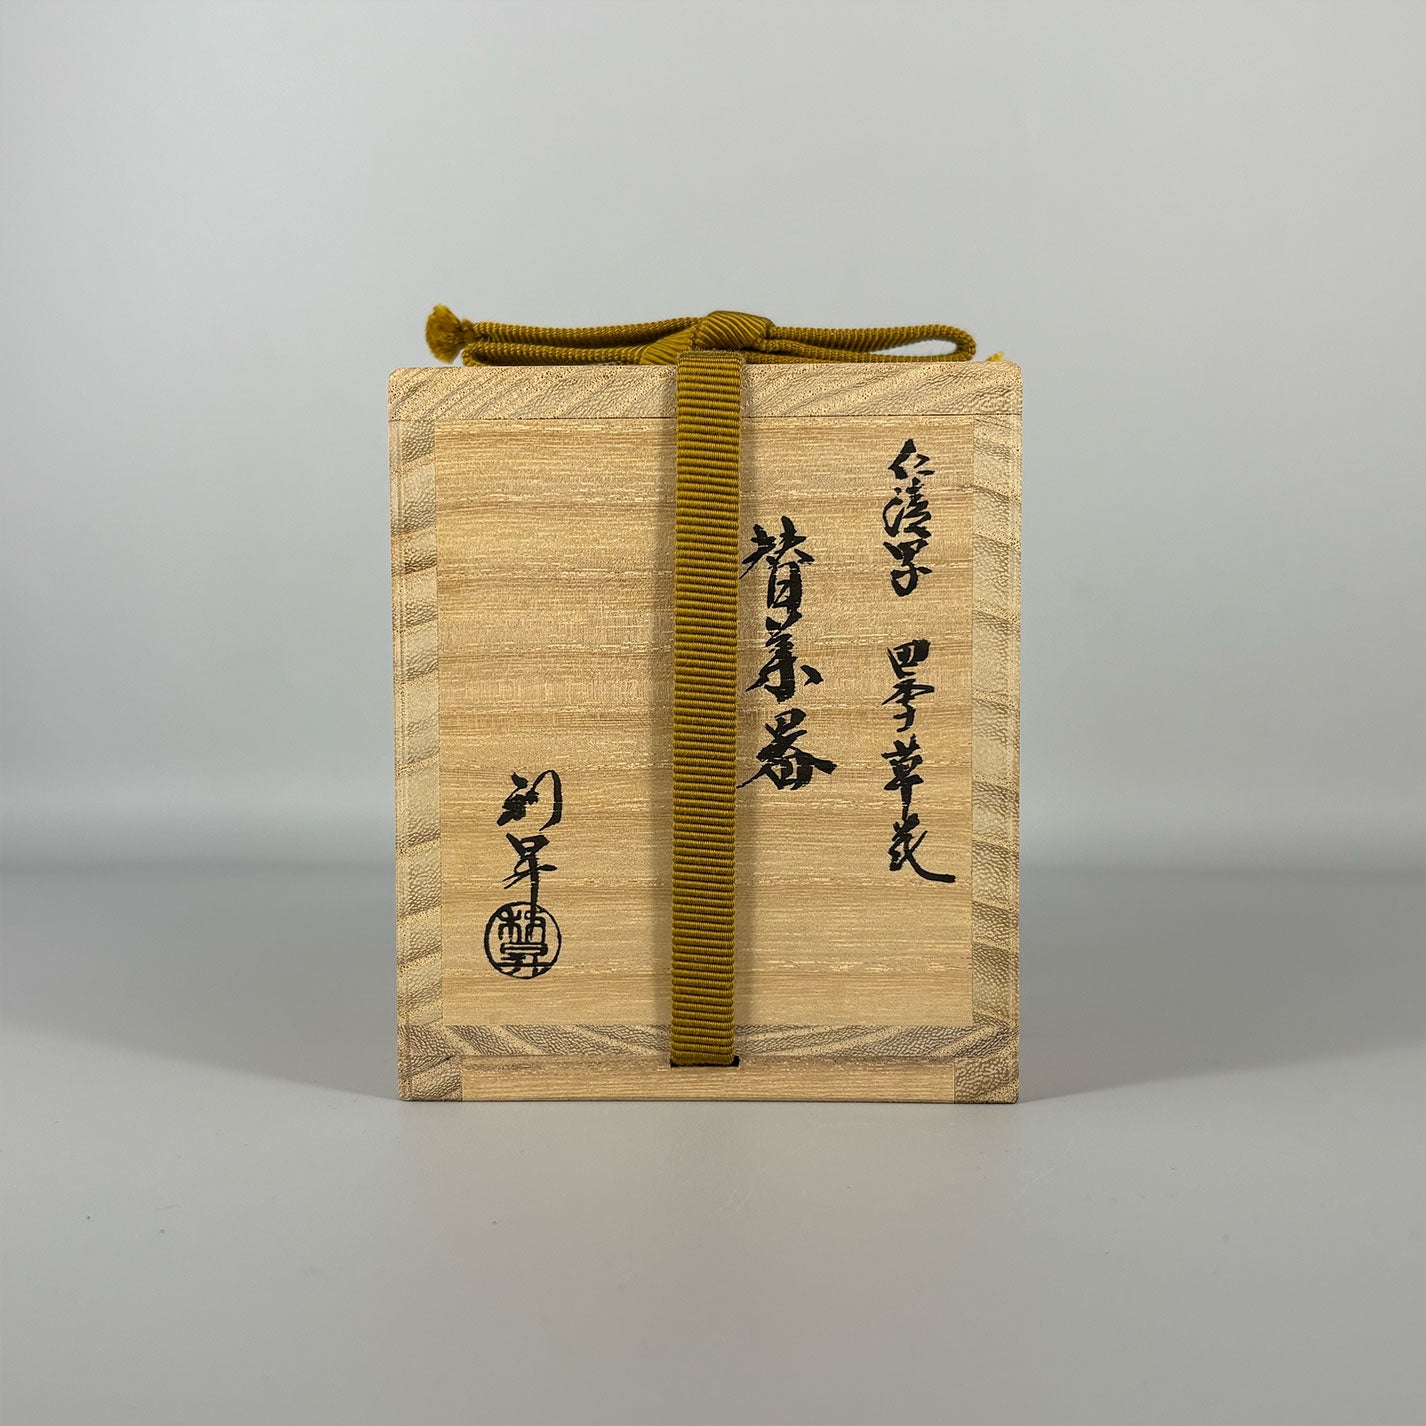 仁清写 四季草花
替茶器
利昇
利昇